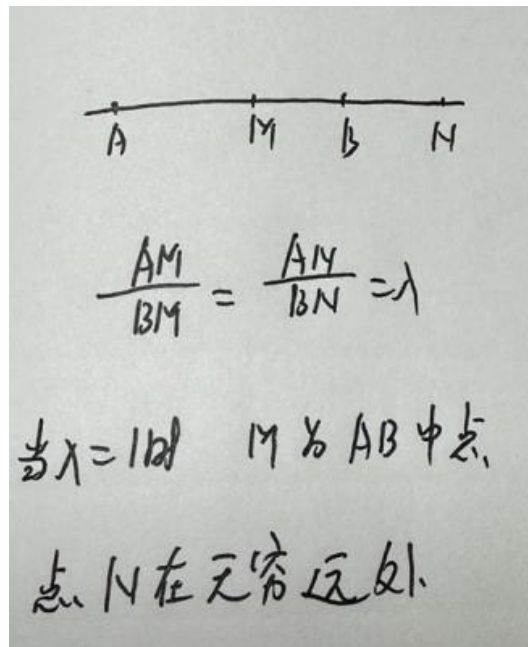 A M B N
AM/BM = AN/BN = λ
当λ=1时 M为AB中点
点N在无穷远处